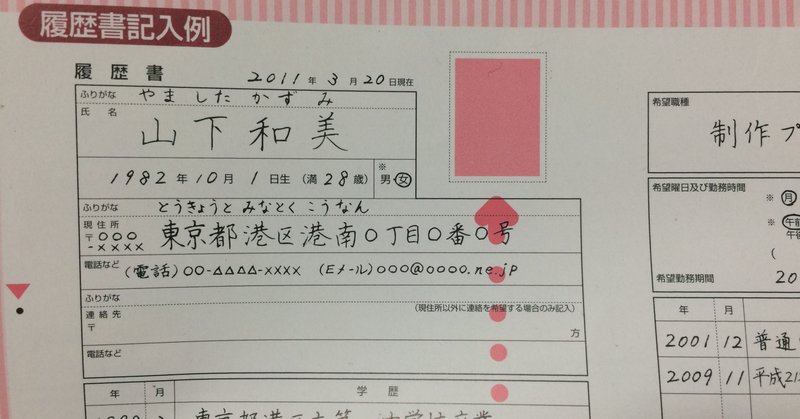 履歴書記入例
履歴書
2011年3月20日現在
ふりがな やました かずみ
氏名 山下和美
1982年10月1日生(満28歳) ※男・女
ふりがな とうきょうと みなとく こうなん
現住所 〒○○○-×××× 東京都港区港南○丁目○番○号
電話など (電話)○○-△△△△-×××× (Eメール)○○○@○○○○.ne.jp
ふりがな
連絡先 (現住所以外に連絡を希望する場合のみ記入)
〒 方
電話など
年 月 学歴
希望職種
制作プ
希望曜日及び勤務時間
※ 月
※ 午前
午後
(
希望勤務期間 20
年 月
2001 12 普通
2009 11 平成21